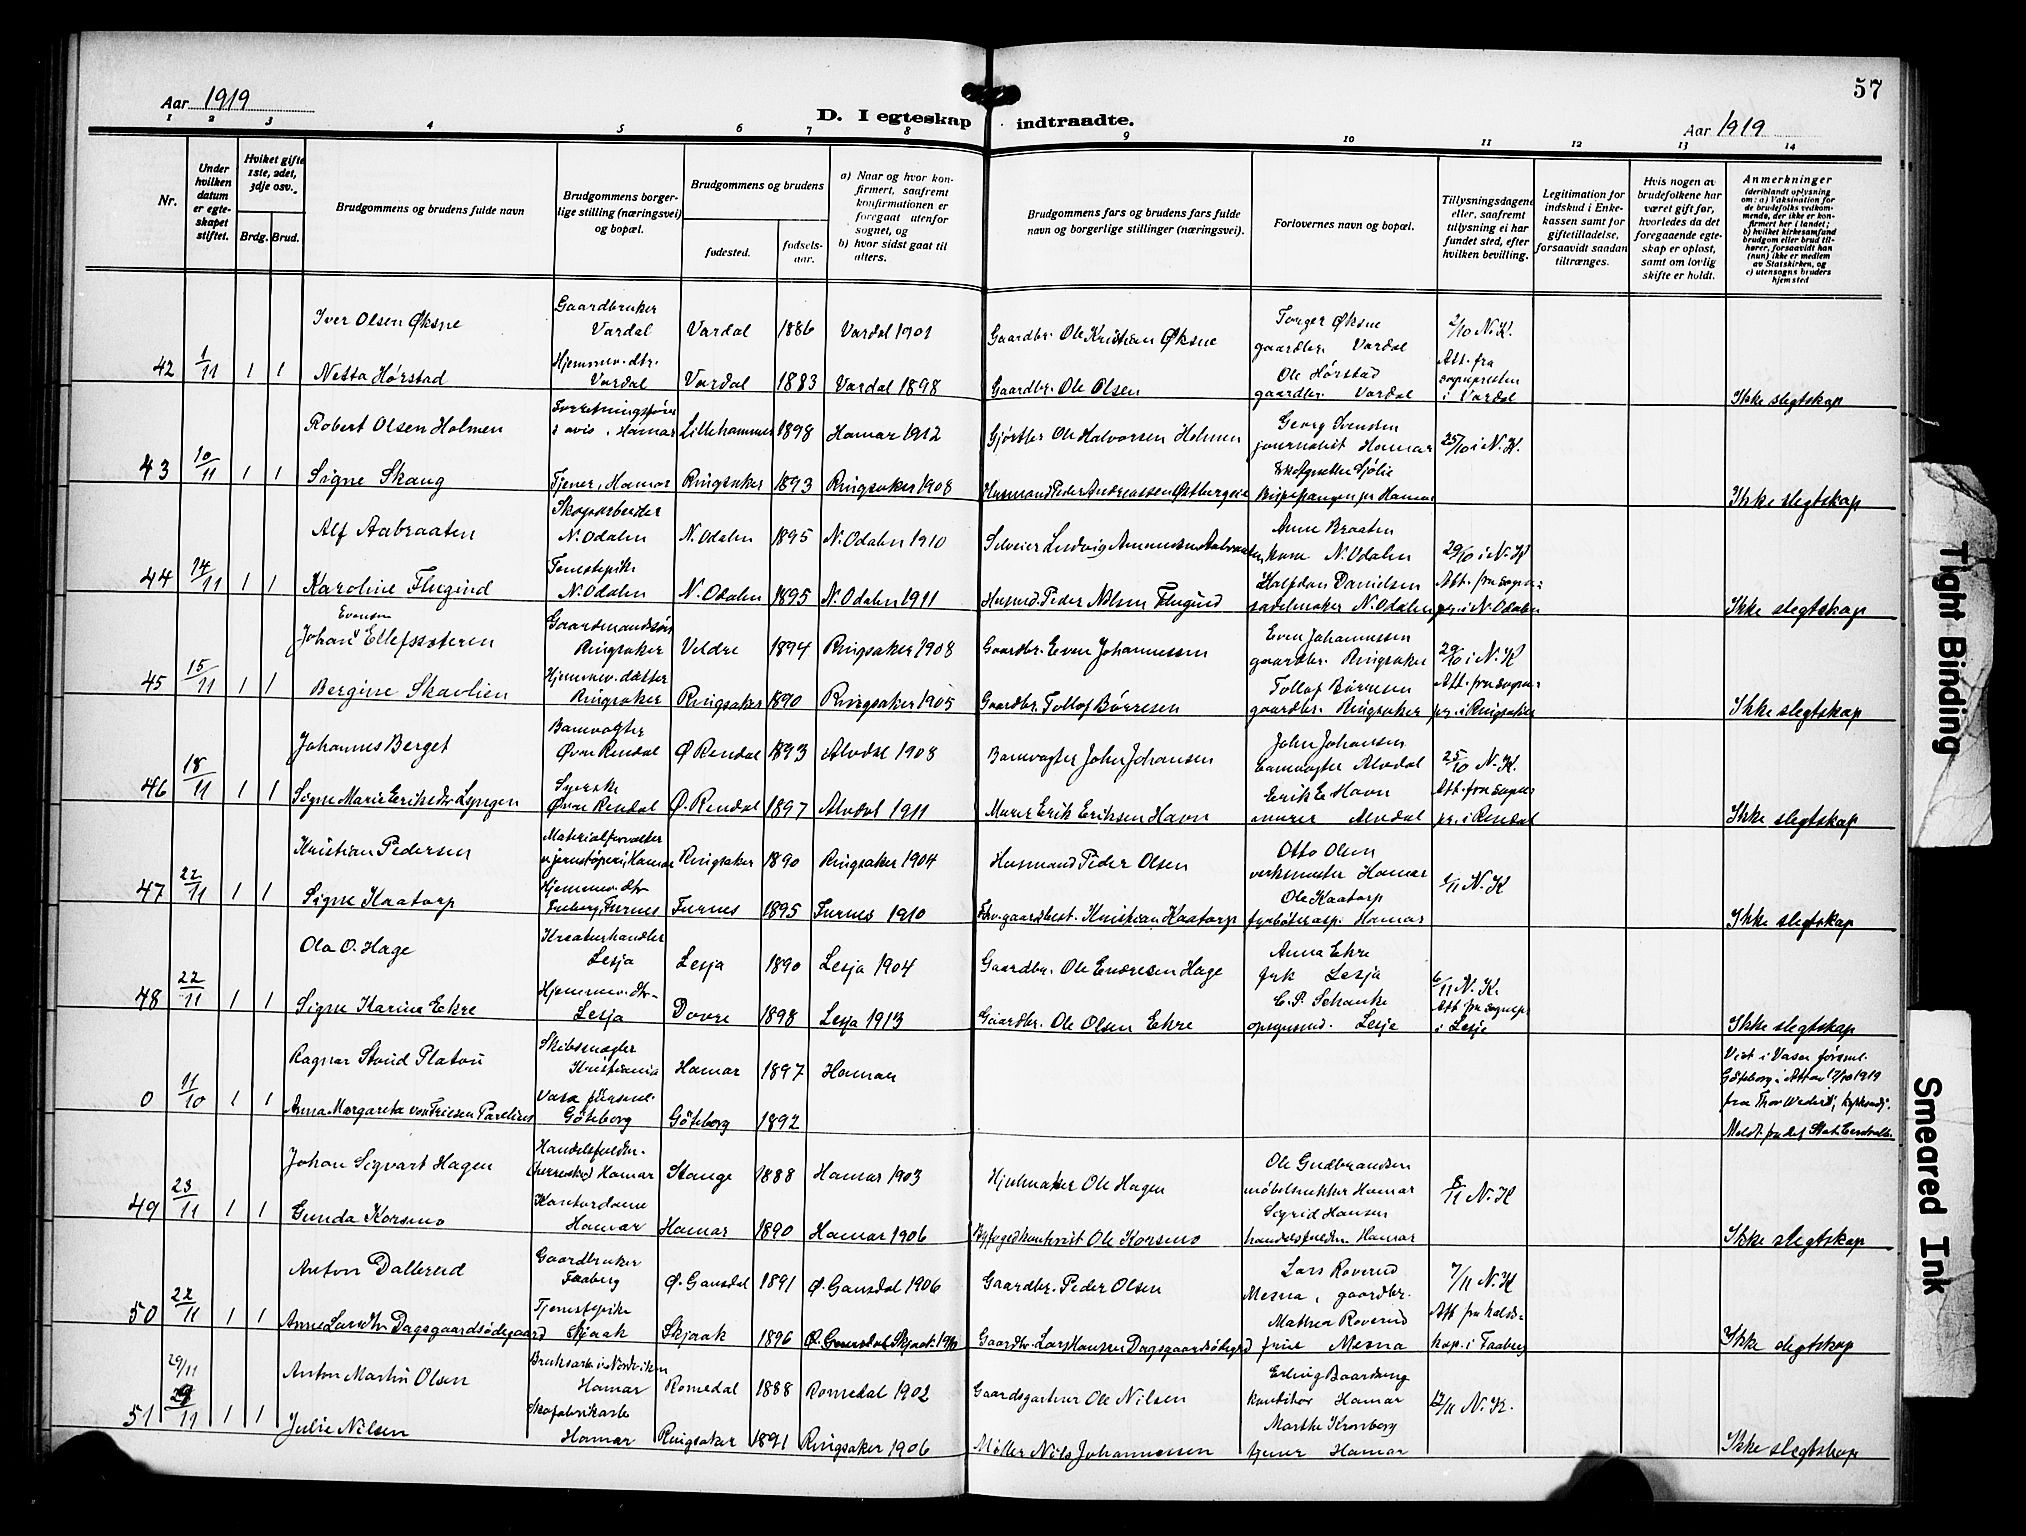 57
Aar 1919
D. I egteskap indtraadte.
Aar 1919
1 2 3 4 5 6 7 8 9 10 11 12 13 14
Nr.
Under hvilken datum er egteskapet stiftet.
Hvilket gifte 1ste, 2det, 3dje osv.
Brdg. Brud.
Brudgommens og brudens fulde navn
Brudgommens borgerlige stilling (næringsvei) og bopæl.
Brudgommens og brudens
fødested.
fødselsaar.
a) Naar og hvor konfirmert, saafremt konfirmationen er foregaat utenfor sognet, og
b) hvor sidst gaat til alters.
Brudgommens fars og brudens fars fulde navn og borgerlige stillinger (næringsvei).
Forlovernes navn og bopæl.
Tillysningsdagene eller, saafremt tillysning ei har fundet sted, efter hvilken bevilling.
Legitimation for indskud i Enkekassen samt for giftetilladelse, forsaavidt saadan tiltrænges.
Hvis nogen av brudefolkene har været gift før, hvorledes da det foregaaende egteskap er opløst, samt om lovlig skifte er holdt.
Anmerkninger
(deriblandt oplysning om: a) Vaksination for de brudefolks vedkommende, der ikke er konfirmert her i landet; b) hvilket kirkesamfund brudgom eller brud tilhører, forsaavidt han (hun) ikke er medlem av Statskirken, og c) utensogns bruders hjemsted
Iver Olsen Øksne Gaardbruker Vardal Vardal 1886 Vardal 1901 Gaardbr. Ole Kristian Øksne Torger Øksne gaardbr. Vardal 2/10 N.K.
42 1/11 1 1 Netta Hørstad Hjemmev. dtr. Vardal Vardal 1883 Vardal 1898 Gaardbr. Ole Olsen Ole Hørstad gaardbr. Vardal Att. fra sognepresten i Vardal Ikke slegtskap
Robert Olsen Holmen Forretningsfører i avis, Hamar Lillehammer 1898 Hamar 1912 Gjørtler Ole Halvorsen Holmen Georg Svensten journalist Hamar 25/10 i N.K.
43 10/11 1 1 Signe Skaug Tjener, Hamar Ringsaker 1893 Ringsaker 1908 Husmand Peder Andreassen Hamar Ikke slegtskap
Alf Aabraaten Skogsarbeider N. Odalen N. Odalen 1895 N. Odalen 1910 Selveier Ludvig Amundsen Aabraaten Anne Braaten kone N. Odalen 29/10 i N.K
44 14/11 1 1 Karoline Flugind Tjenestepike N. Odalen N. Odalen 1895 N. Odalen 1911 Husmd. Peder Nilsen Flugind Halfdan Danielsen sadelmaker N. Odalen Att. fra sognepr. i N. Odalen Ikke slegtskap
Johan Evensen Ellefssæteren Gaardmandssøn Ringsaker Veldre 1894 Ringsaker 1908 Gaardbr. Even Johannessen Even Johannessen gaardbr. Ringsaker 29/10 i N.K
45 15/11 1 1 Bergine Skavlien Hjemmev. datter Ringsaker Ringsaker 1890 Ringsaker 1905 Gaardbr. Tollof Børresen Tollof Børresen gaardbr. Ringsaker Att. fra sognepr. i Ringsaker Ikke slegtskap
Johannes Berget Banevogter Øvre Rendal Ø Rendal 1893 Alvdal 1908 Banevogter John Johansen John Johansen banevogter Alvdal 25/10 N.K.
46 18/11 1 1 Signe Marie Eriksdtr Lyngen Syerske Øvre Rendal Ø. Rendal 1897 Alvdal 1911 Murer Erik Eriksen Havn Erik E Havn murer Alvdal Att. fra sognepr. i Rendal Ikke slegtskap
Kristian Pedersen Materialforvalter v. jernstøperi, Hamar Ringsaker 1890 Ringsaker 1904 Husmand Peder Olsen Otto Olsen verksmester Hamar 1/11 N.K
47 22/11 1 1 Signe Kaatorp Hjemmev. dtr Furnes Furnes 1895 Furnes 1910 Kristian Kaatorp Ole Kaatorp fyrbøterasp. Hamar Ikke slegtskap
Ola O. Hage Kreaturhandler Lesja Lesja 1890 Lesja 1904 Gaardbr. Ole Endresen Hage Anna Ekre frk Lesja 6/11 N.K.
48 22/11 1 1 Signe Karine Ekre Hjemmev. dtr Lesja Dovre 1898 Lesja 1913 Gaardbr. Ole Olsen Ekre C. P. Schanke opsynsmd. Lesje Att fra sognepr i Lesje Ikke slegtskap
Ragnar Stoud Platou Skibsmægler Kristiania Hamar 1897 Hamar Viet i Vasa førsml. Göteborg
0 11/10 1 1 Anna Margareta von Friesen Parelius Vasa försml. Göteborg Göteborg 1892
Johan Sigvart Hagen Hamar Stange 1888 Hamar 1903 Hjulmaker Ole Hagen Ole Gudbrandsen møbelsnekker Hamar 8/11 N.K
49 23/11 1 1 Gunda Korsmo Kontordame Hamar Hamar 1890 Hamar 1906 Byfogedkontorist Ole Korsmo Sigrid Hansen handelsfuldm. Hamar Ikke slegtskap
Anton Dallerud Gaardbruker Faaberg Ø. Gausdal 1891 Ø. Gausdal 1906 Gaardbr. Peder Olsen Lars Roverud Mesna, gaardbr. 7/11 N.K
50 22/11 1 1 Anne Larsdtr. Dagsgaardsødegaard Tjenstepike Skjaak Skjaak 1896 Gaardbr. Lars Hansen Dagsgaardsødegrd Mathea Roverud frue Mesna Att fra kap. i Faaberg Ikke slegtskap
29/11 Anton Martin Olsen Hamar Romedal 1888 Romedal 1902 Gaardsgartner Ole Nilsen Erling Baardseng konditor Hamar 12/11 N.K.
51 29/11 1 1 Julie Nilsen Skofabrikarb. Hamar Ringsaker 1891 Ringsaker 1906 Møller Nils Johannessen Marthe Kronborg tjener Hamar Ikke slegtskap
Tight Binding
Smeared Ink